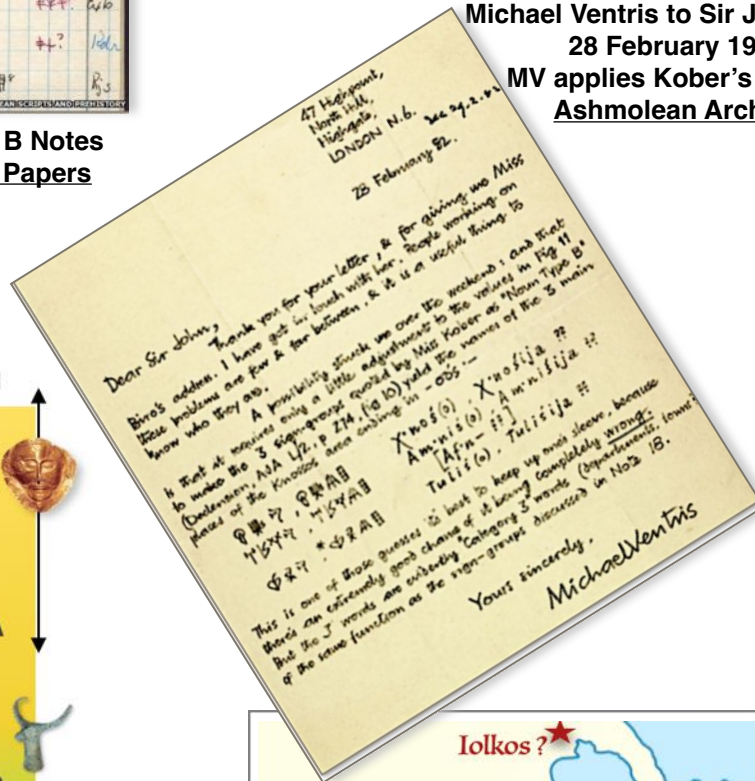 EAN SCRIPTS AND PREHISTORY
B Notes
Papers
Michael Ventris to Sir J
28 February 19
MV applies Kober's
Ashmolean Arch
47 Highpoint,
North Hill,
Highgate,
LONDON N.6.
28 February 52.
Dear Sir John,
Thank you for your letter, & for giving me Miss
Biro's address. I have got in touch with her. People working on
these problems are few & far between, & it is a useful thing to
know who they are.
A possibility struck me over the weekend: and that
is that it requires only a little adjustment to the values in Fig 11
to make the 3 sign-groups quoted by Miss Kober as "Noun Type B"
(Declension, AJA L/2, p 274, fig 10) yield the names of the 3 main
places of the Knossos area ending in -
This is one of those guesses is best to keep up one's sleeve, because
there's an extremely good chance of it being completely wrong.
But the 3 words are evidently "Category 3" words (departments, towns
of the same function as the sign-groups discussed in Note 18.
Yours sincerely,
Michael Ventris
Iolkos ?